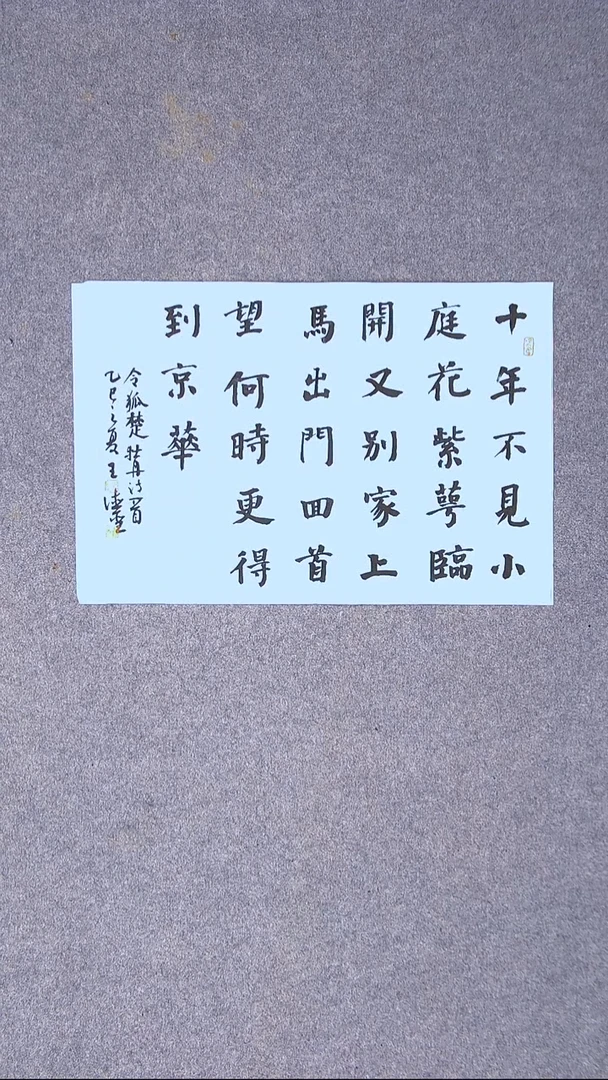 十年不見小
庭花紫萼臨
開又別家上
馬出門回首
望何時更得
到京華
令狐楚牡丹詩一首
乙巳之夏王